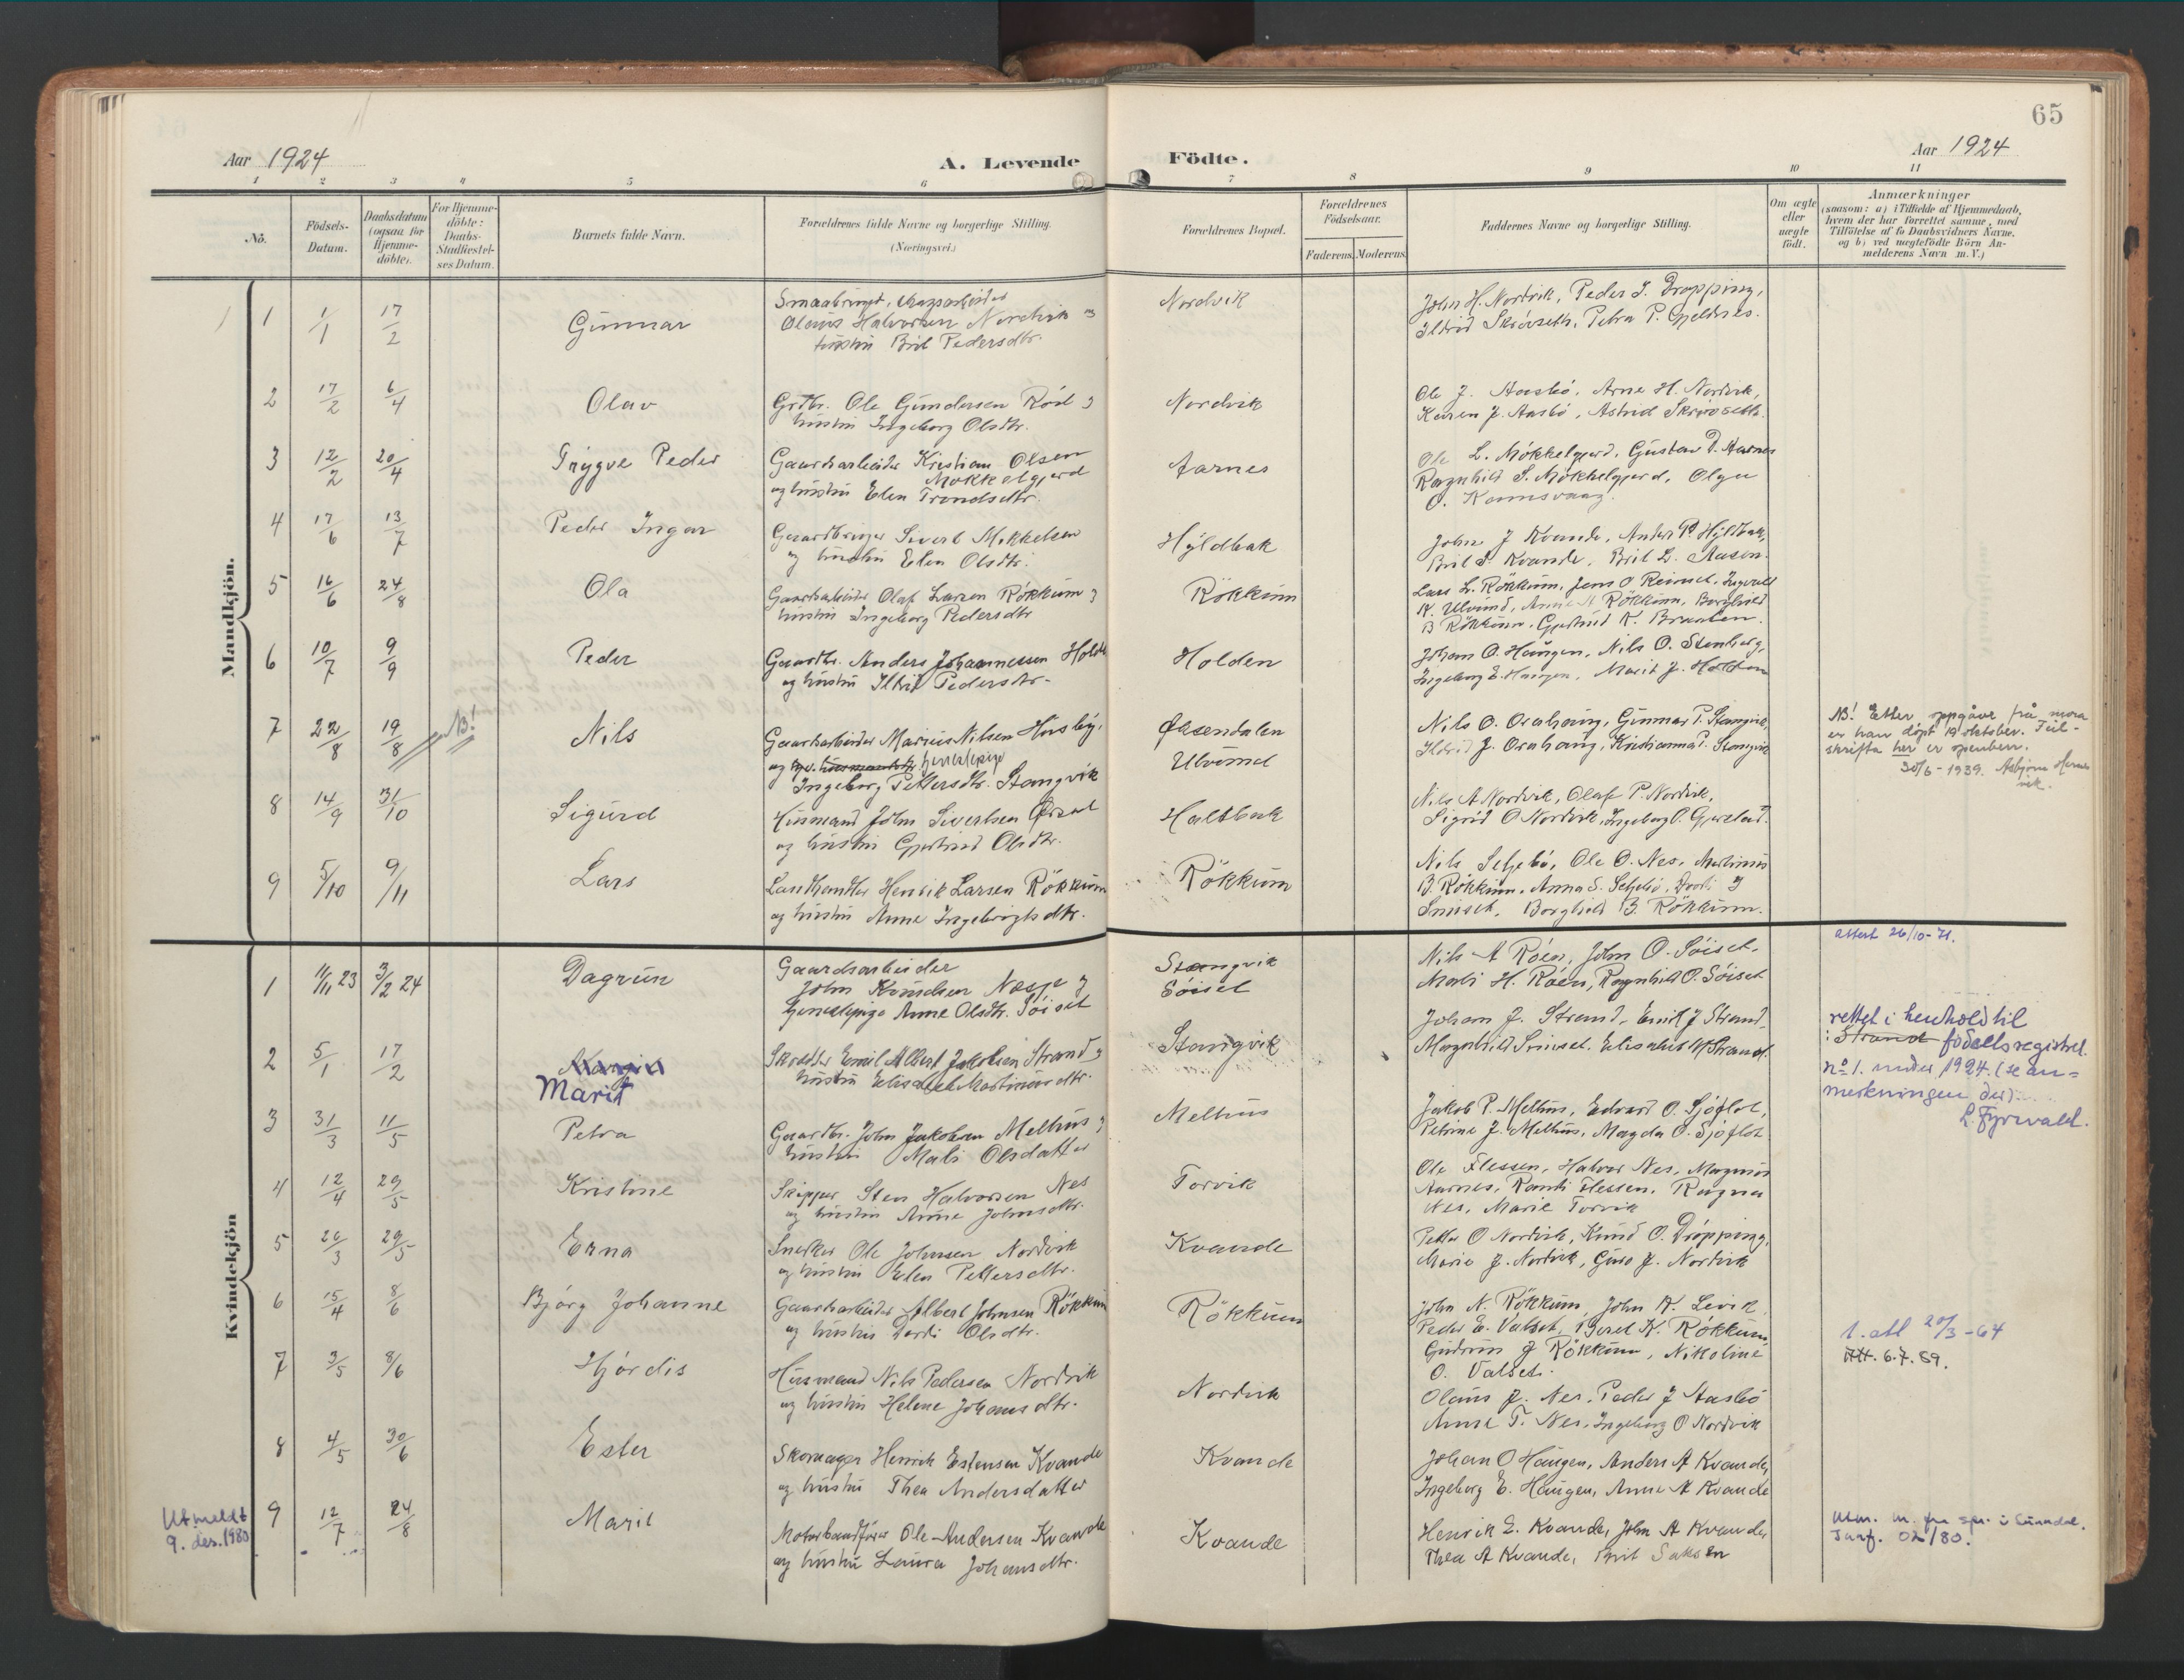 65
Aar 1924
A. Levende Födte.
Aar 1924
1 2 3 4 5 6 7 8 9 10 11
No.
Födsels-
Datum.
Daabsdatum
(ogsaa for
Hjemme-
döbte).
For Hjemme-
döbte:
Daabs-
Stadfæstel-
ses Datum.
Barnets fulde Navn.
Forældrenes fulde Navne og borgerlige Stilling.
(Næringsvei.)
Forældrenes Bopæl.
Forældrenes
Födselsaar.
Faderens. Moderens.
Faddernes Navne og borgerlige Stilling.
Om ægte
eller
uægte
födt.
Anmærkninger
(saasom: a) i Tilfælde af Hjemmedaab,
hvem der har forrettet samme, med
Tilföielse af to Daabsvidners Navne,
og b) ved uægtefödte Börn An-
melderens Navn m. V.)
Mandkjön.
1 1/1 17/2 Gunnar
Smaabruger,
Olaus Halvorsen Nordvik og
hustru Brit Pedersdtr.
Nordvik
John H. Nordvik, Peder J. Dröpping,
Ildrid Skrövseth, Petra P. Gjeldnes.
2 17/2 6/4 Olav
Grdbr. Ole Gundersen Röd og
hustru Ingeborg Olsdtr.
Nordvik
Ole J. Aasbö, Arne H. Nordvik,
Karen J. Aasbö, Astrid Skrövseth.
3 12/2 20/4 Trygve Peder
Gaardsarbeider Kristian Olsen
Mökkelgjerd
og hustru Elen Trondsdtr.
Aarnes
Ole L. Mökkelgjerd, Gustav P. Aarnes
Ragnhild S. Mökkelgjerd, Olga
O. Kamsvaag.
4 17/6 13/7 Peder Ingar
Gaardbruger Sivert Mikkelsen
og hustru Elen Olsdtr.
Hyldbak
John J Kvande, Anders P. Hyldbak,
Brit J. Kvande, Brit L. Aasen.
5 16/6 24/8 Ola
Gaardsarbeider Olaf Larsen Rökkum og
hustru Ingeborg Pedersdtr
Rökkum
Lars L. Rökkum, Jens O Reinset, Ingvald
K. Ulvund, Anne A Rökkum, Borghild
B Rökkum, Gjertrud K. Braaten.
6 10/7 9/9 Peder
Gaardbr. Anders Johannessen Holden
og hustru Ildrid Pedersdtr.
Holden
Johan O. Haugen, Nils O. Stenberg,
Ingeborg E. Haugen, Marit J. Holden
7 22/8 19/8 NB! Nils
Gaardsarbeider Marius Nilsen Husby,
og
Ingeborg Pettersdtr. Stangvik
Øksendalen
Ulvund
Nils O. Orahaug, Gunnar P. Stangvik,
Ildrid J. Orahaug, Kristianna P. Stangvik
NB! Etter oppgåve frå mora
er han döpt 19 oktober. Feil-
skrifta her er openberr.
30/6 - 1939. Asbjörn Hernes
8 14/9 31/10 Sigurd
Husmand John Sivertsen
og hustru Gjertrud Olsdtr.
Haltbak
Nils A Nordvik, Olaf P. Nordvik,
Sigrid O Nordvik, Ingeborg O. Gjerstad.
9 5/10 9/11 Lars
Landhandler Henrik Larsen Rökkum
og hustru Anne Ingebrigtsdtr.
Rökkum
Nils Seljebö, Ole O. Nes, Martinus
B. Rökkum, Anna S. Seljebö, Dorti J
Snuset, Borghild B. Rökkum.
Kvindekjön
attest 26/10-71.
1 11/11 23 3/2 24 Dagrun
Gaardsarbeider
John Knudsen Næsje og
Anne Olsdtr. Söiset
Stangvik
Söiset
Nils A Röen, John O. Söiset.
Marti H. Röen, Ragnhild O. Söiset
2 5/1 17/2
Marit
Skrædder Emil Albert Jakobsen Strand og
hustru Elisabet Martinusdtr.
Stangvik
Johan J. Strand, Emil J Strand,
Magnhild Snuset, Elisabet M Strand.
rettet i henhold til
födselsregistret
no 1. under 1924. (se an-
merkningen der).
L. Fyrwald.
3 31/3 11/5 Petra
Gaardbr. John Jakobsen Melhus og
hustru Mali Olsdatter
Melhus
Jakob P. Melhus, Edvard O. Sjöflot,
Petrine J. Melhus, Magda O. Sjöflot
4 12/4 29/5 Kristine
Skipper Sten Halvorsen Nes
og hustru Anne Johnsdtr.
Torvik
Ole Flessen, Halvor Nes, Magnus
Aarnes, Randi Flessen, Ragna
Nes, Marie Torvik
5 20/3 29/5 Erna
Snekker Ole Johnsen Nordvik
og hustru Elen Pettersdtr.
Kvande
Petter O Nordvik, Knud O. Dröpping,
Marie J. Nordvik, Guro J. Nordvik
6 15/4 8/6 Bjórg Johanne
Gaardsarbeider Albert Johnsen Rökkum
og hustru Dordi Olsdtr.
Rökkum
John N. Rökkum, John K. Levik
Peder E. Valset, Beret K. Rökkum
Gudrun J Rökkum, Nikoline
O. Valset.
1. att 20/3 - 64
Att. 6.7.89.
7 3/5 8/6 Hjördis
Husmand Nils Pedersen Nordvik
og hustru Helene Johansdtr.
Nordvik
Olaus J. Nes, Peder J Aasbö
Anne T. Nes, Ingeborg O Nordvik
8 4/5 30/6 Ester
Skomager Henrik Estensen Kvande
og hustru Thea Andersdatter
Kvande
Johan O Haugen, Anders A Kvande,
Ingeborg E. Haugen, Anne A Kvande
Utmeldt
9. des. 1980
9 12/7 24/8 Marit
Motorbaadförer Ole Andersen Kvande
og hustru Laura Johansdtr.
Kvande
Henrik E. Kvande, John A Kvande,
Thea A Kvande, Brit
Utm. m. fra spr. i Sunndal.
Jnrf. 02/80.